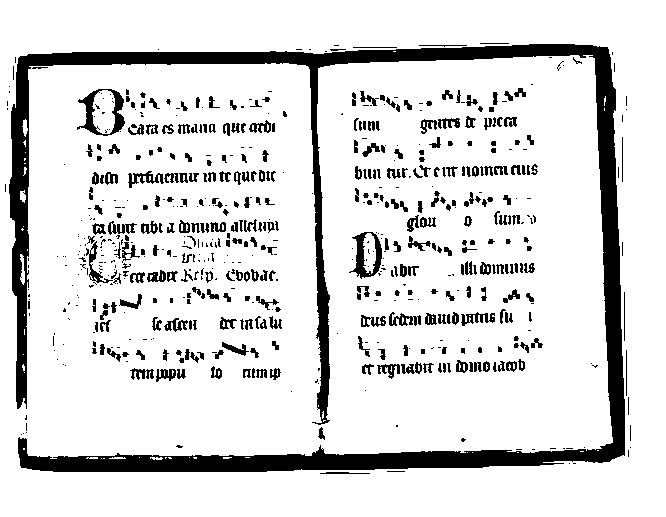 Beata es maria que credi
disti perficientur in te que dic
ta sunt tibi a domino alleluya
Ecce radix Resp. Evovae.
jesse ascen det in salu
tem popu lo rum ip
sum gentes de preca
bun tur. Et e rit nomen eius
glori o sum.
Dabit illi dominus
deus sedem david patris su i
et regnabit in domo iacob